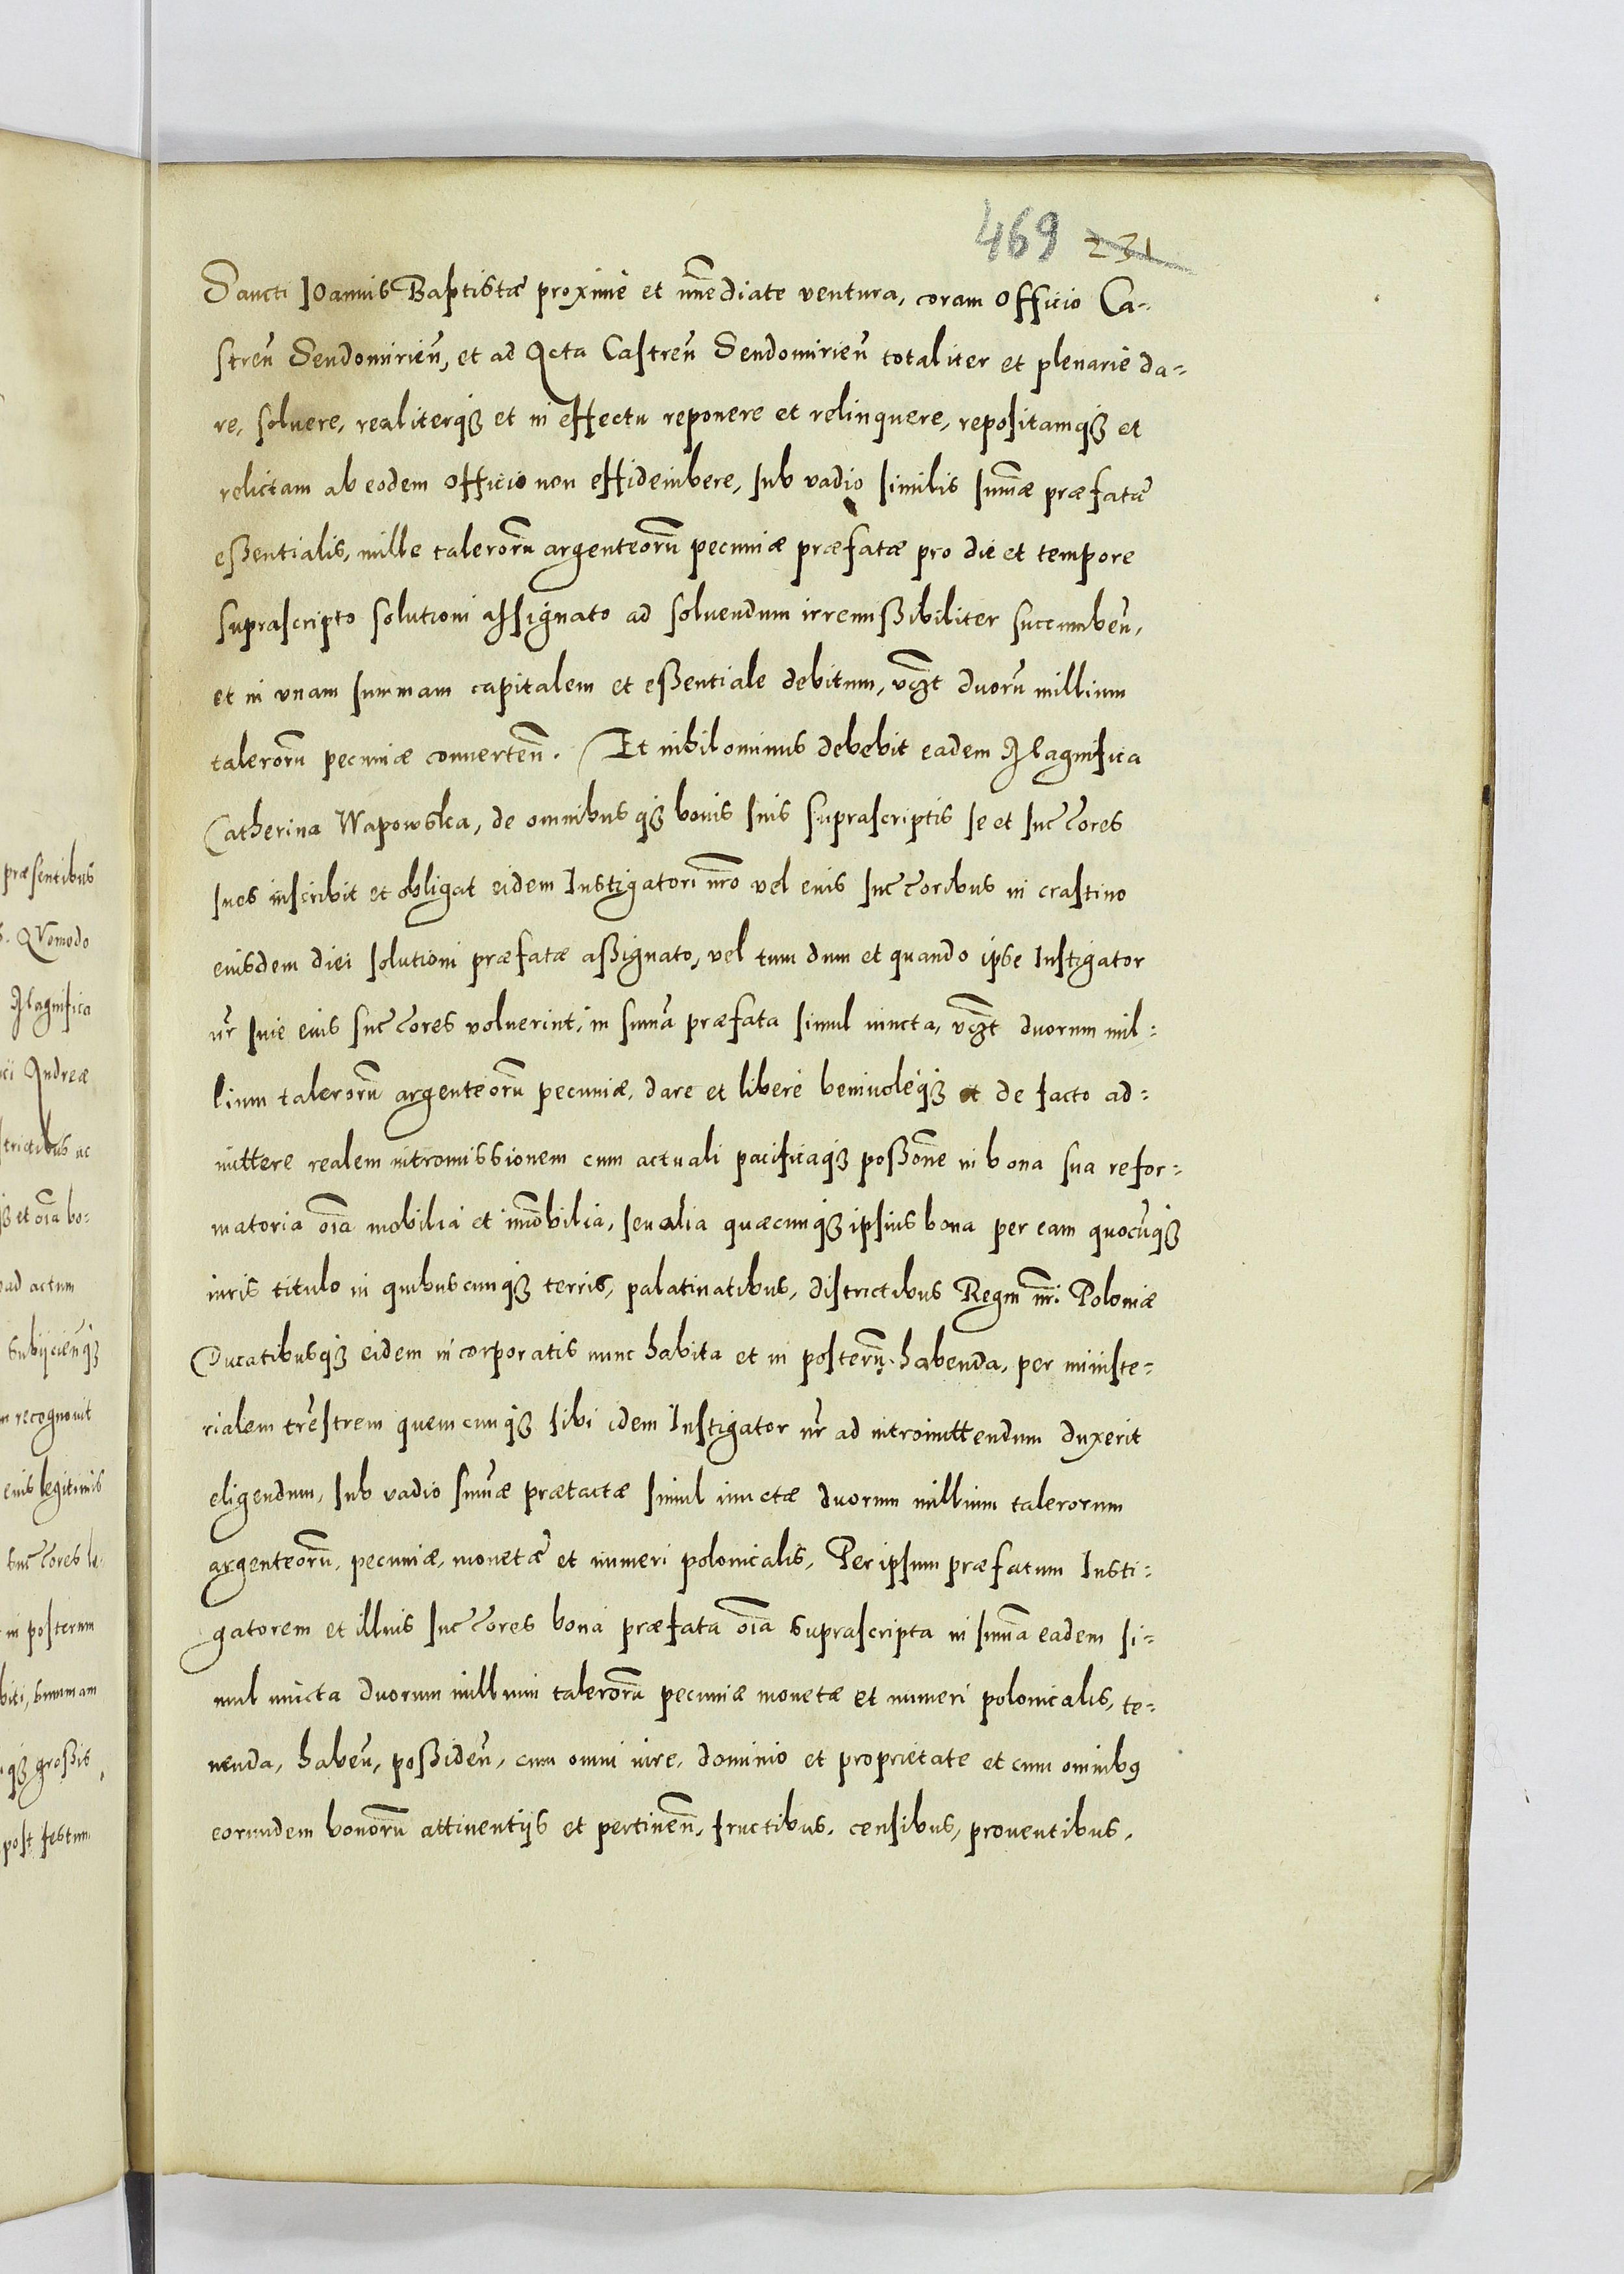 469 231
Sancti Joannis Baptistæ proxime et im̃ediate ventura, coram Officio Ca-
streñ Sendomirieñ, et ad Acta Castreñ Sendomirieñ totaliter et plenarie da-
re, soluere, realiterqȝ et in effectu reponere et relinquere, repositamqȝ et
relictam ab eodem Officio non effideiubere, sub vadio similis sum̃æ præfatæ
eßentialis, mille talerorũ argenteorũ pecuniæ præfatæ pro die et tempore
suprascripto solutioni assignato ad soluendum irremißibiliter succumbeñ,
et in vnam summam capitalem et eßentiale debitum, vcȝt duorũ millium
talerorũ pecuniæ conuerteñ. Et nihilominus debebit eadem Magnifica
Catherina Wapowska, de omnibusqȝ bonis suis suprascriptis se et succ̃ores
suos inscribit et obligat eidem Instigatori nr̃o vel eius succ̃oribus in crastino
eiusdem diei solutioni præfatæ aßignato, vel tum dum et quando ipse Instigator
nr̃ siue eius succ̃ores voluerint, in sum̃a præfata simul iuncta, vcȝt duorum mil-
lium talerorũ argenteorũ pecuniæ, dare et libere beniuoleqȝ et de facto ad-
mittere realem intromissionem cum actuali pacificaqȝ poßoñe in bona sua refor-
matoria oĩa mobilia et im̃obilia, seu alia quæcunqȝ ipsius bona per eam quocũqȝ
iuris titulo in quibuscunqȝ terris, palatinatibus, districtibus Regni nr̃i Poloniæ
Ducatibusqȝ eidem incorporatis nunc habita et in posterũ habenda, per ministe-
rialem tr̃estrem quemcunqȝ sibi idem Instigator nr̃ ad intromittendum duxerit
eligendum, sub vadio sum̃æ prætactæ simul iunctæ duorum millium talerorum
argenteorũ, pecuniæ, monetæ et numeri polonicalis, Per ipsum præfatum Insti-
gatorem et illius succ̃ores bona præfata oĩa suprascripta in sum̃a eadem si-
mul iuncta duorum millium talerorũ pecuniæ monetæ et numeri polonicalis, te-
nenda, habeñ, poßideñ, cum omni iure, dominio et proprietate et cum omnibꝰ
eorundem bonorũ attinentijs et pertineñ, fructibus, censibus, prouentibus,
præsentibus
Quomodo
Magnifica
Andreæ
strictibus ac
qȝ et oĩa bo-
ad actum
subijcieñqȝ
recognouit
eius legitimis
succ̃ores le-
in posterum
biti, summam
qȝ großis,
post festum